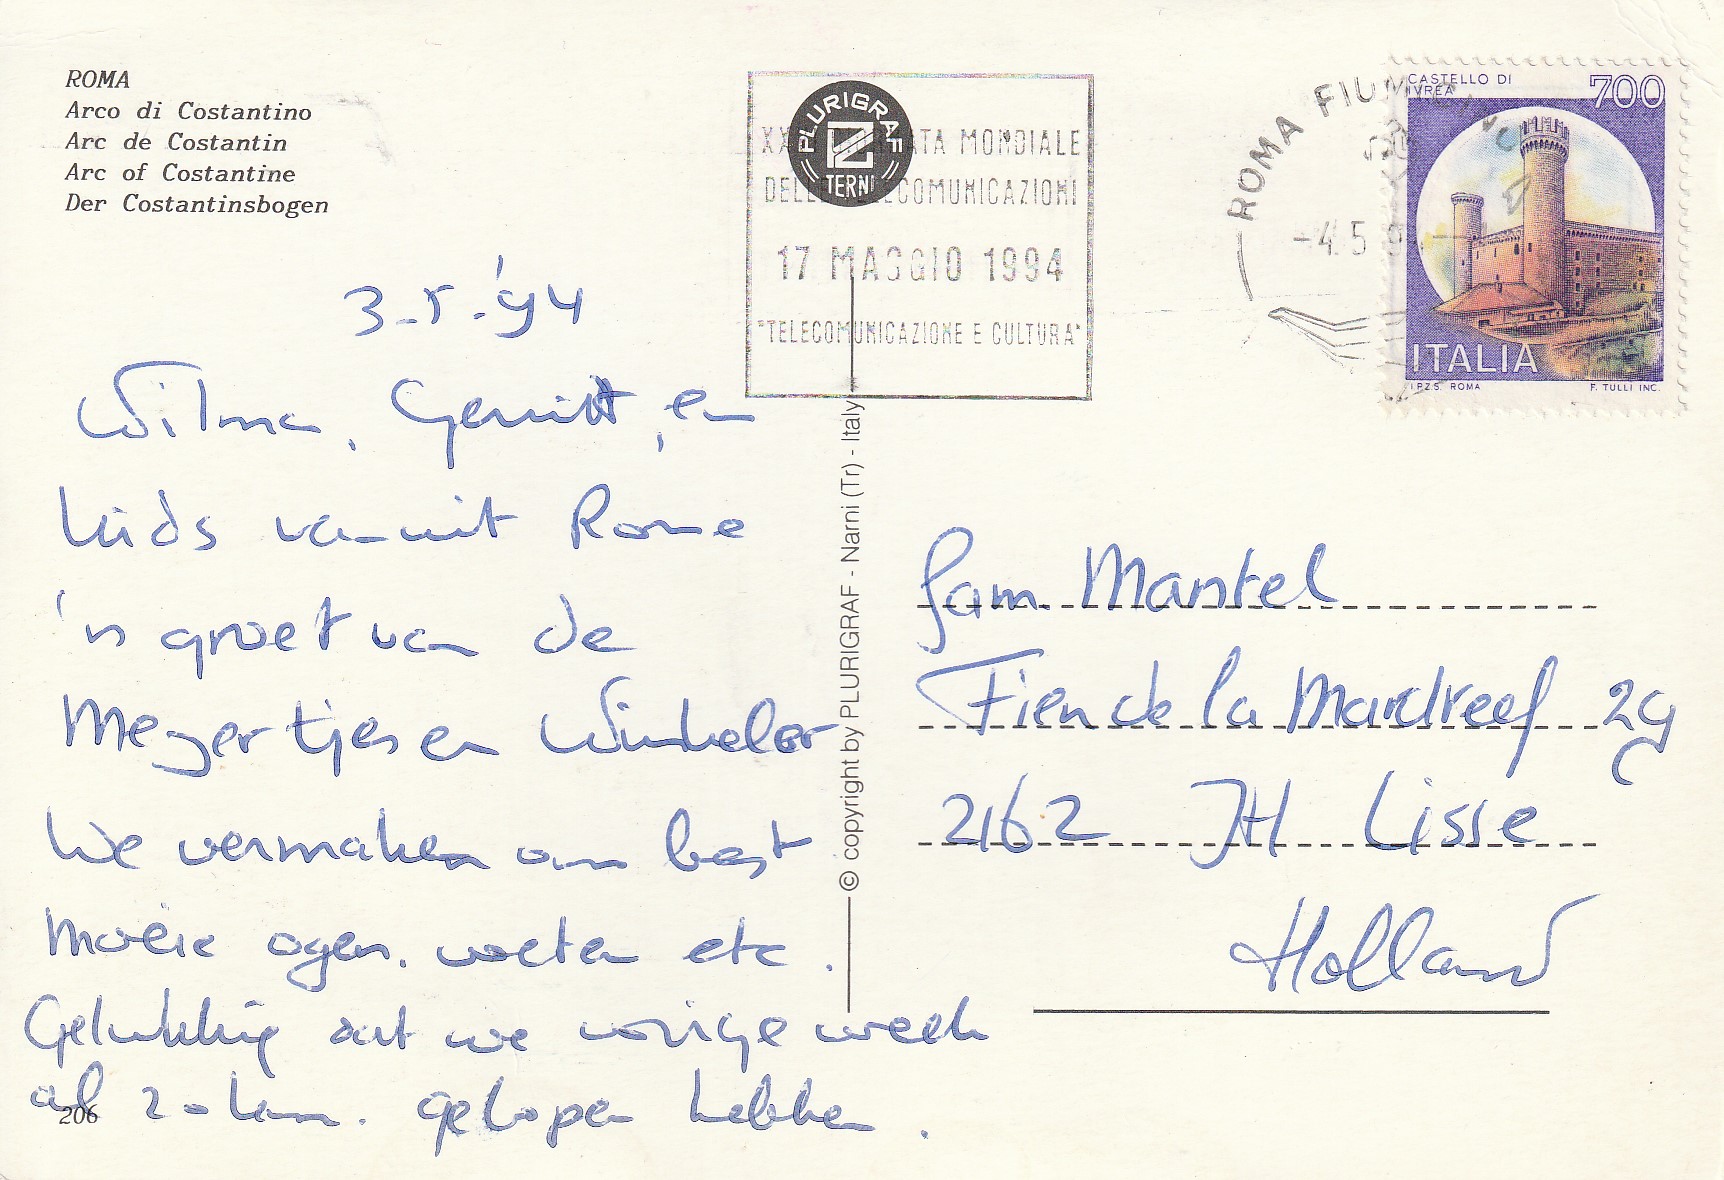 ROMA
Arco di Costantino
Arc de Costantin
Arc of Costantine
Der Costantinsbogen
PLURIGRAF
TERNI
GIORNATA MONDIALE
DELLE TELECOMUNICAZIONI
17 MAGGIO 1994
"TELECOMUNICAZIONE E CULTURA"
ROMA FIUMICINO
-4.5
CASTELLO DI
IVREA
700
ITALIA
I.P.Z.S. ROMA
F. TULLI INC.
3-5-'94
Wilma, Gerritt, en
kids vanuit Rome
'n groet van de
Meyertjes en Winkeler
We vermaken ons best
moeie ogen, voeten etc.
Gelukkig dat we vorige week
al 20 km. gelopen hebben.
206
© copyright by PLURIGRAF - Narni (Tr) - Italy
fam. Mantel
Fien de la Mardreef 29
2162 JH Lisse
Holland